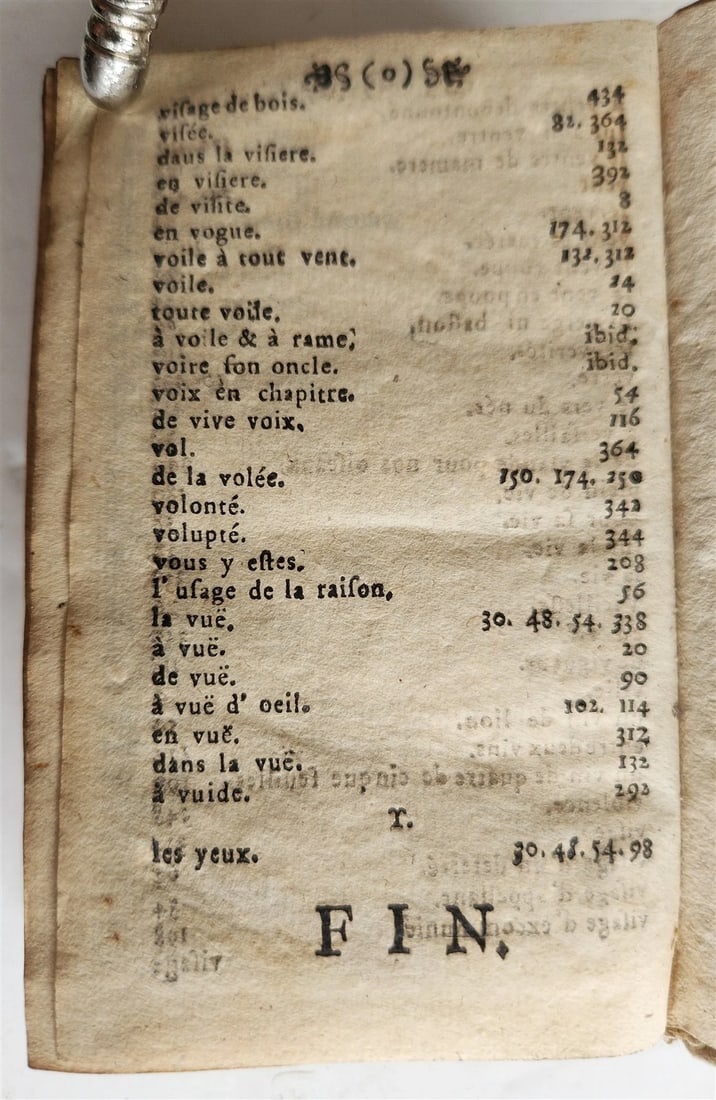 (o)
viſage de bois. 434
viſée. 82. 364
dans la viſiere. 132
en viſiere. 392
de viſite. 8
en vogue. 174. 312
voile à tout vent. 132. 312
voile. 24
toute voile. 20
à voile & à rame. ibid.
voire ſon oncle. ibid.
voix en chapitre. 54
de vive voix. 116
vol. 364
de la volée. 150. 174. 250
volonté. 342
volupté. 344
vous y eſtes. 208
l' uſage de la raiſon. 56
la vuë. 30. 48. 54. 338
à vuë. 20
de vuë. 90
à vuë d' oeil. 102. 114
en vuë. 312
dans la vuë. 132
à vuide. 292
Y.
les yeux. 30. 48. 54. 98
FIN.